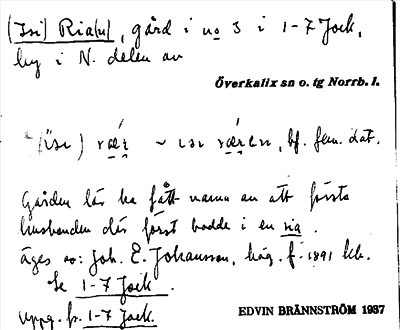 (Isi) Ria(n), gård i no 3 i 1-7 Jock,
by i N. delen av
Överkalix sn o. tg Norrb. l.
bf. fem. dat.
Gården lär ha fått namn av att första
husbonden där först bodde i en ria.
äges av: Joh. E. Johansson, häg. f. 1891 kb.
Se 1-7 Jock.
Uppg. fr. 1-7 Jock.
EDVIN BRÄNNSTRÖM 1937